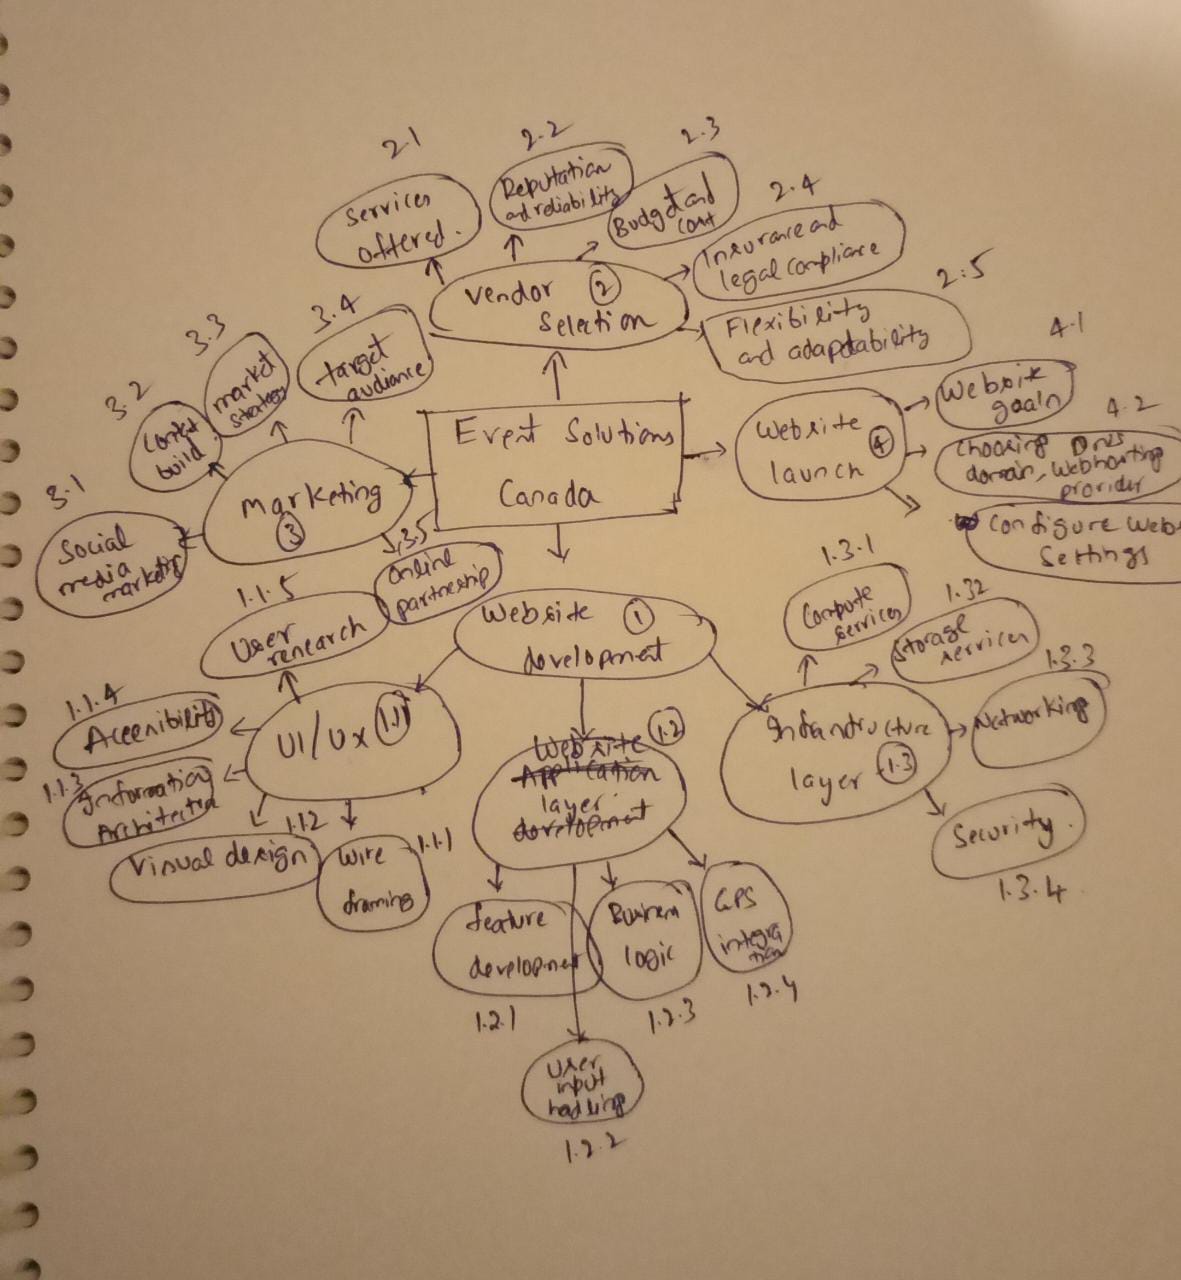 2.1
Services
offered.
2.2
Reputation
and reliability
2.3
Budget and
cost
2.4
Insurance and
legal compliance
2.5
Flexibility
and adaptability
Vendor 2
Selection
3.4
target
audience
3.3
market
strategy
3.2
Content
build.
3.1
Social
media
marketing
Marketing
3
3.5
Online
partnership
Event Solutions
Canada
Website
launch 4
4.1
Website
goals
4.2
Choosing DNS
domain, Webhosting
provider
Configure Web
Settings
Website 1
development
1.1.5
User
research
1.1.4
Accessibility
1.1.3
Information
Architectur
1.1.2
Visual design
1.1.1
Wire
framing
UI/Ux 1.1
Website 1.2
Application
layer
development
feature
development
1.2.1
User
input
hadling
1.2.2
Business
logic
1.2.3
GPS
integra
tion
1.2.4
Infrastructure
layer 1.3
1.3.1
Compute
services
1.32
Storage
services
1.3.3
Networking
Security.
1.3.4